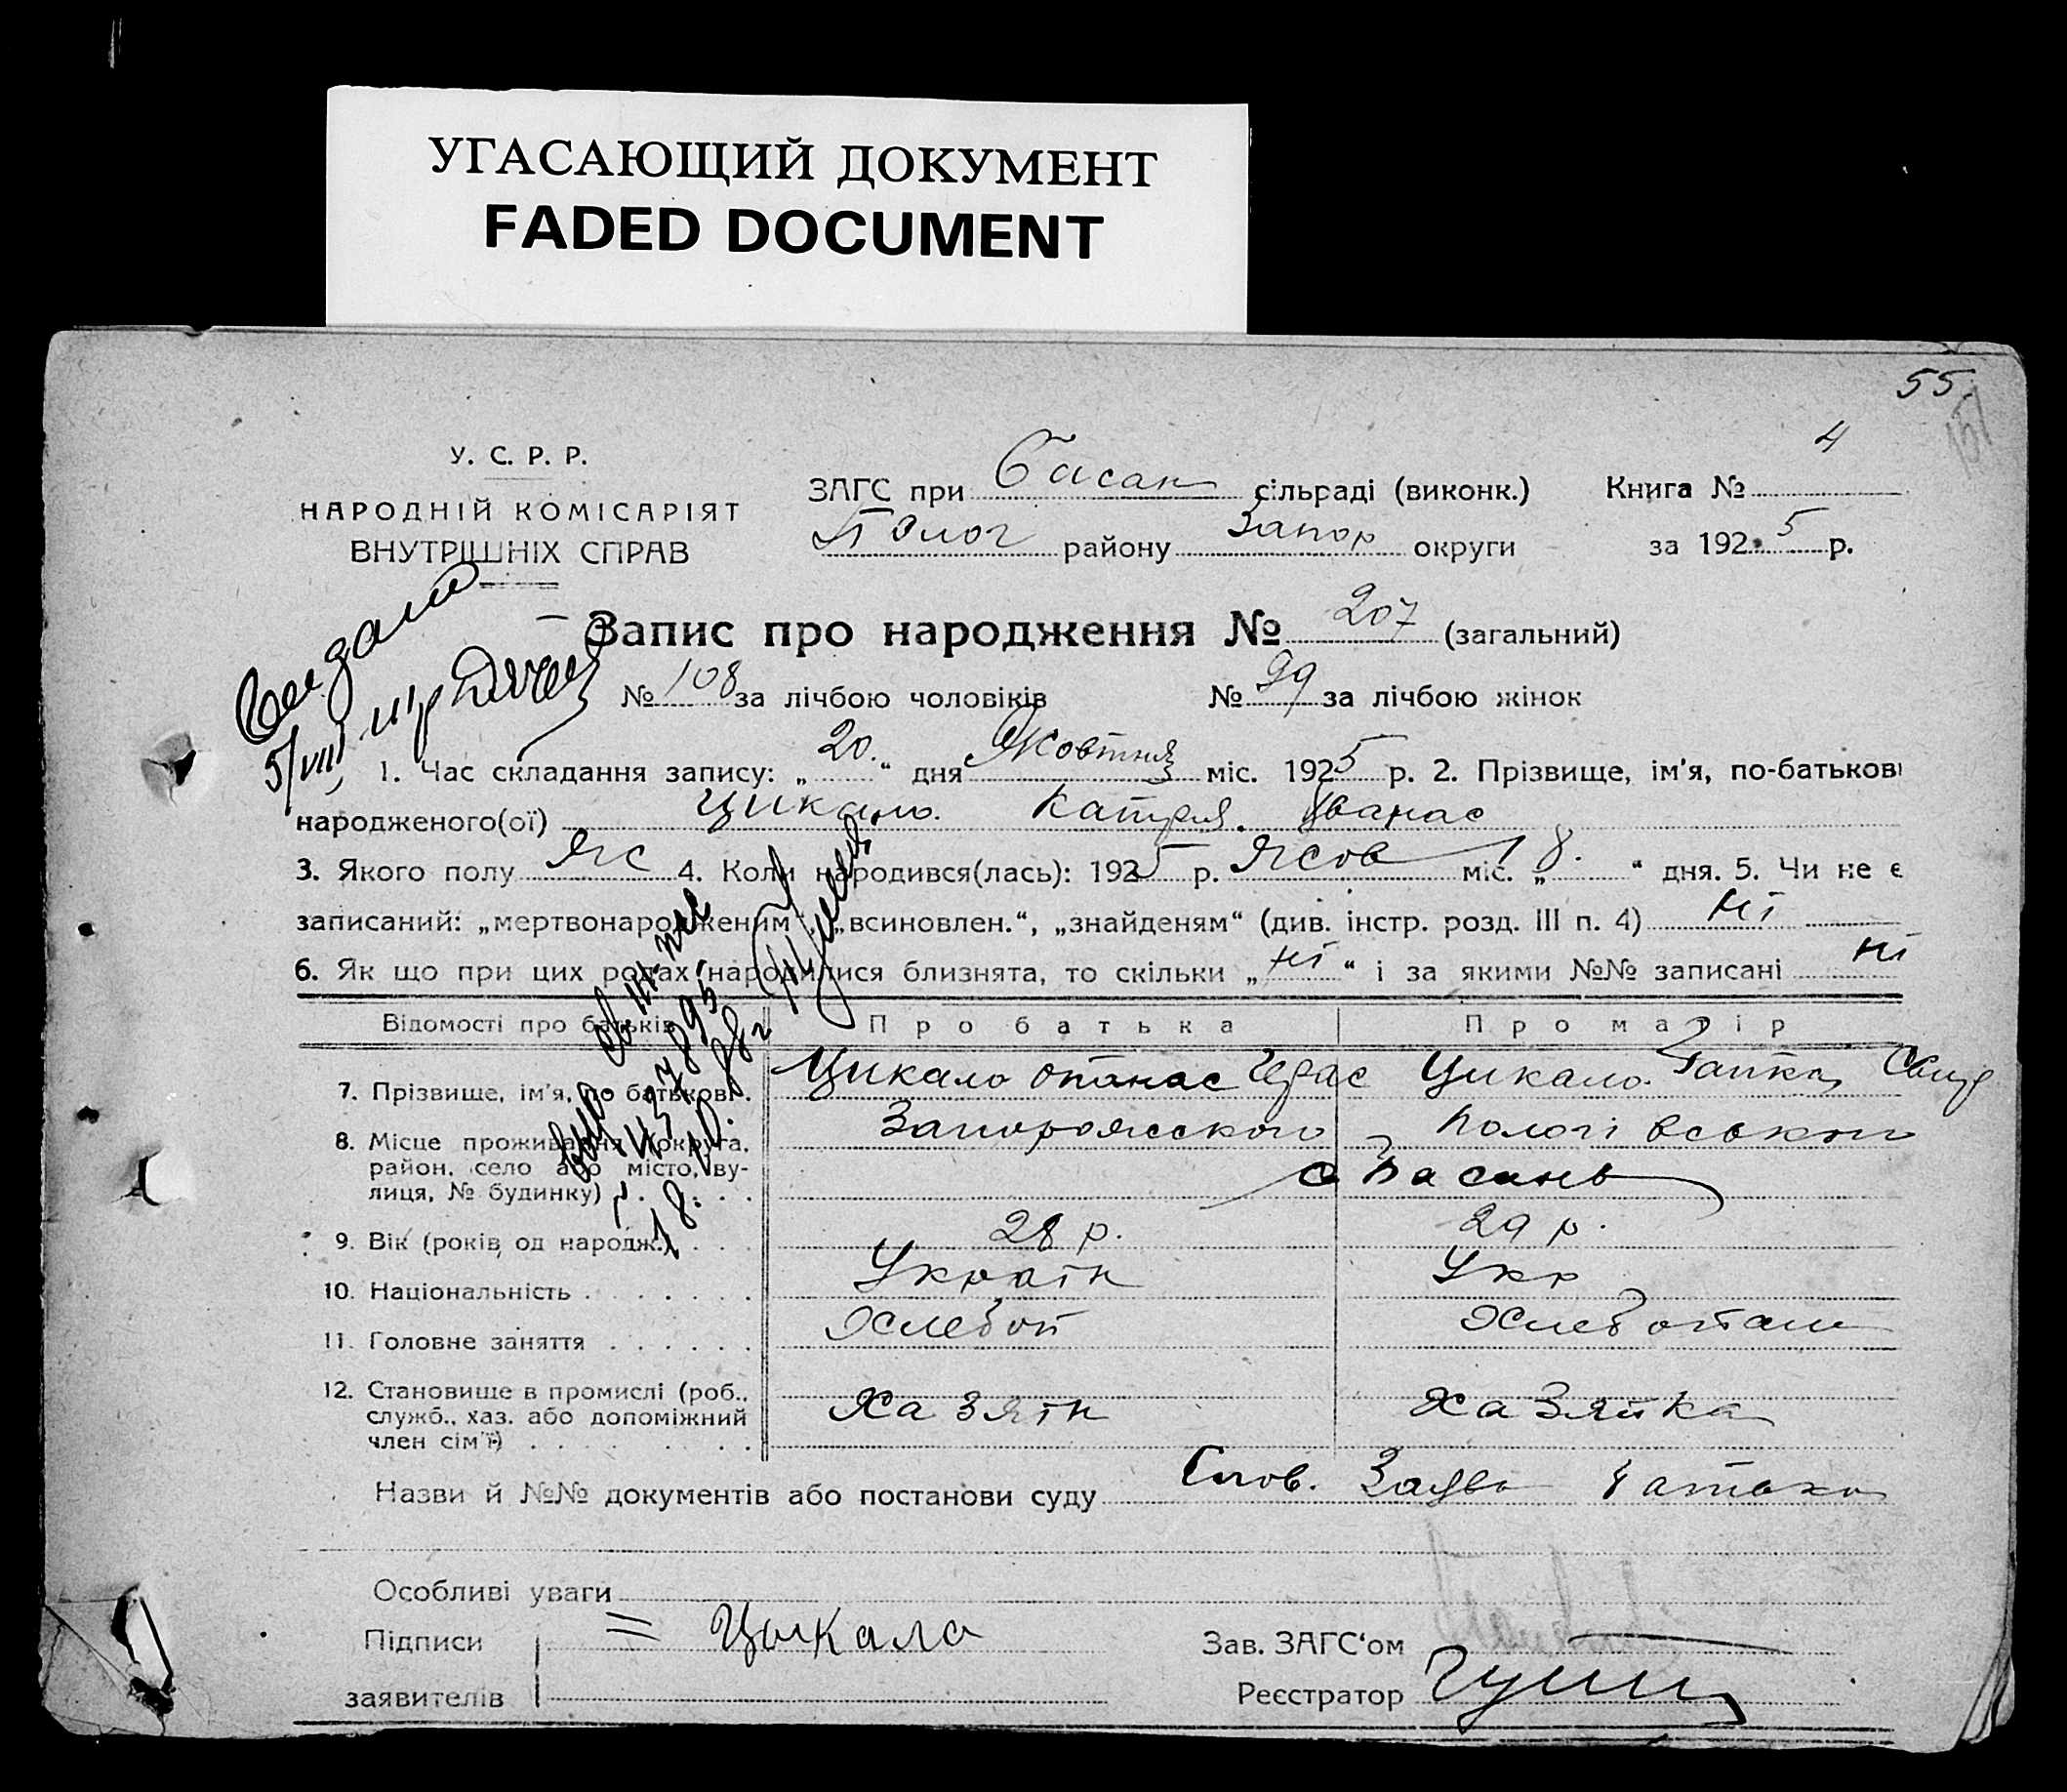 УГАСАЮЩИЙ ДОКУМЕНТ
FADED DOCUMENT
55.
У. С. Р. Р.
НАРОДНІЙ КОМІСАРІЯТ
ВНУТРІШНІХ СПРАВ
ЗАГС при Басан сільраді (виконк.) Книга № 4
Полог району Запор округи за 192 5 р.
Запис про народження № 207 (загальний)
№ 108 за лічбою чоловіків № 99 за лічбою жінок
5/VIII
1. Час складання запису: „ 20. “ дня Жовтня міс. 192 5 р. 2. Прізвище, ім'я, по-батькові
народженого(ої) Цикало. Катря.
3. Якого полу жс 4. Коли народився(лась): 192 5 р. Жов міс. „ 18. “ дня. 5. Чи не є
записаний: „мертвонародженим“, „всиновлен.“, „знайденям“ (див. інстр. розд. III п. 4) ні
6. Як що при цих родах народилися близнята, то скільки „ ні “ і за якими №№ записані ні
Відомості про батьків Про батька Про матір
7. Прізвище, ім'я, по батькові . Цикало Опанас Герас Цикало. Гапка
8. Місце проживання (округа, Запорожского Пологівского
район, село або місто, ву- с Басань
лиця, № будинку) . . . .
9. Вік (років од народж.) . . . 28 р. 29 р.
10. Національність . . . . . . Україн Укр
11. Головне заняття . . . . . . Хлебоп Хлебопаш
12. Становище в промислі (роб., Хазяїн Хазяйка
служб., хаз. або допоміжний
член сім'ї) . . . . . . . .
Назви й №№ документів або постанови суду Слов. Заява батька
Особливі уваги
Підписи = Цыкало Зав. ЗАГС'ом
заявителів Реєстратор